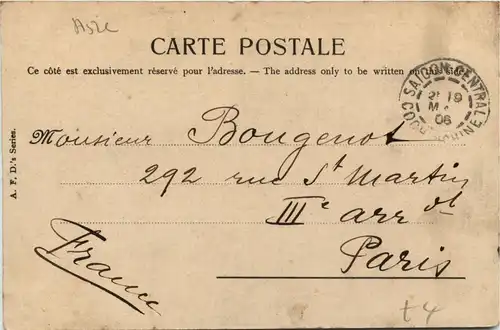 Asie
CARTE POSTALE
Ce côté est exclusivement réservé pour l'adresse. — The address only to be written on this side.
SAIGON-CENTRAL
19
06
COCHINCHINE
A. F. D.'s Series.
Monsieur Bougenot
292 rue St Martin
IIIe arrdt
Paris
France